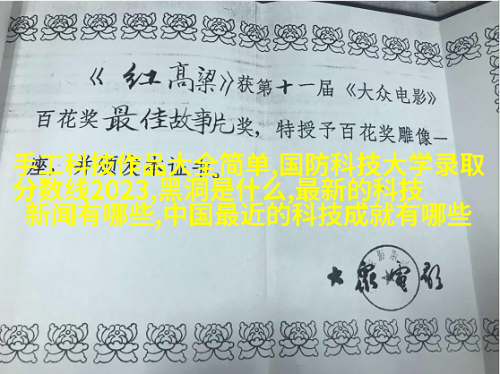 《红高粱》获第十一届《大众电影》
百花奖最佳故事片奖，特授予百花奖雕像一
座，并颁发证书。
手工科技作品大全简单,国防科技大学录取
分数线2023,黑洞是什么,最新的科技
新闻有哪些,中国最近的科技成就有哪些
大众电影